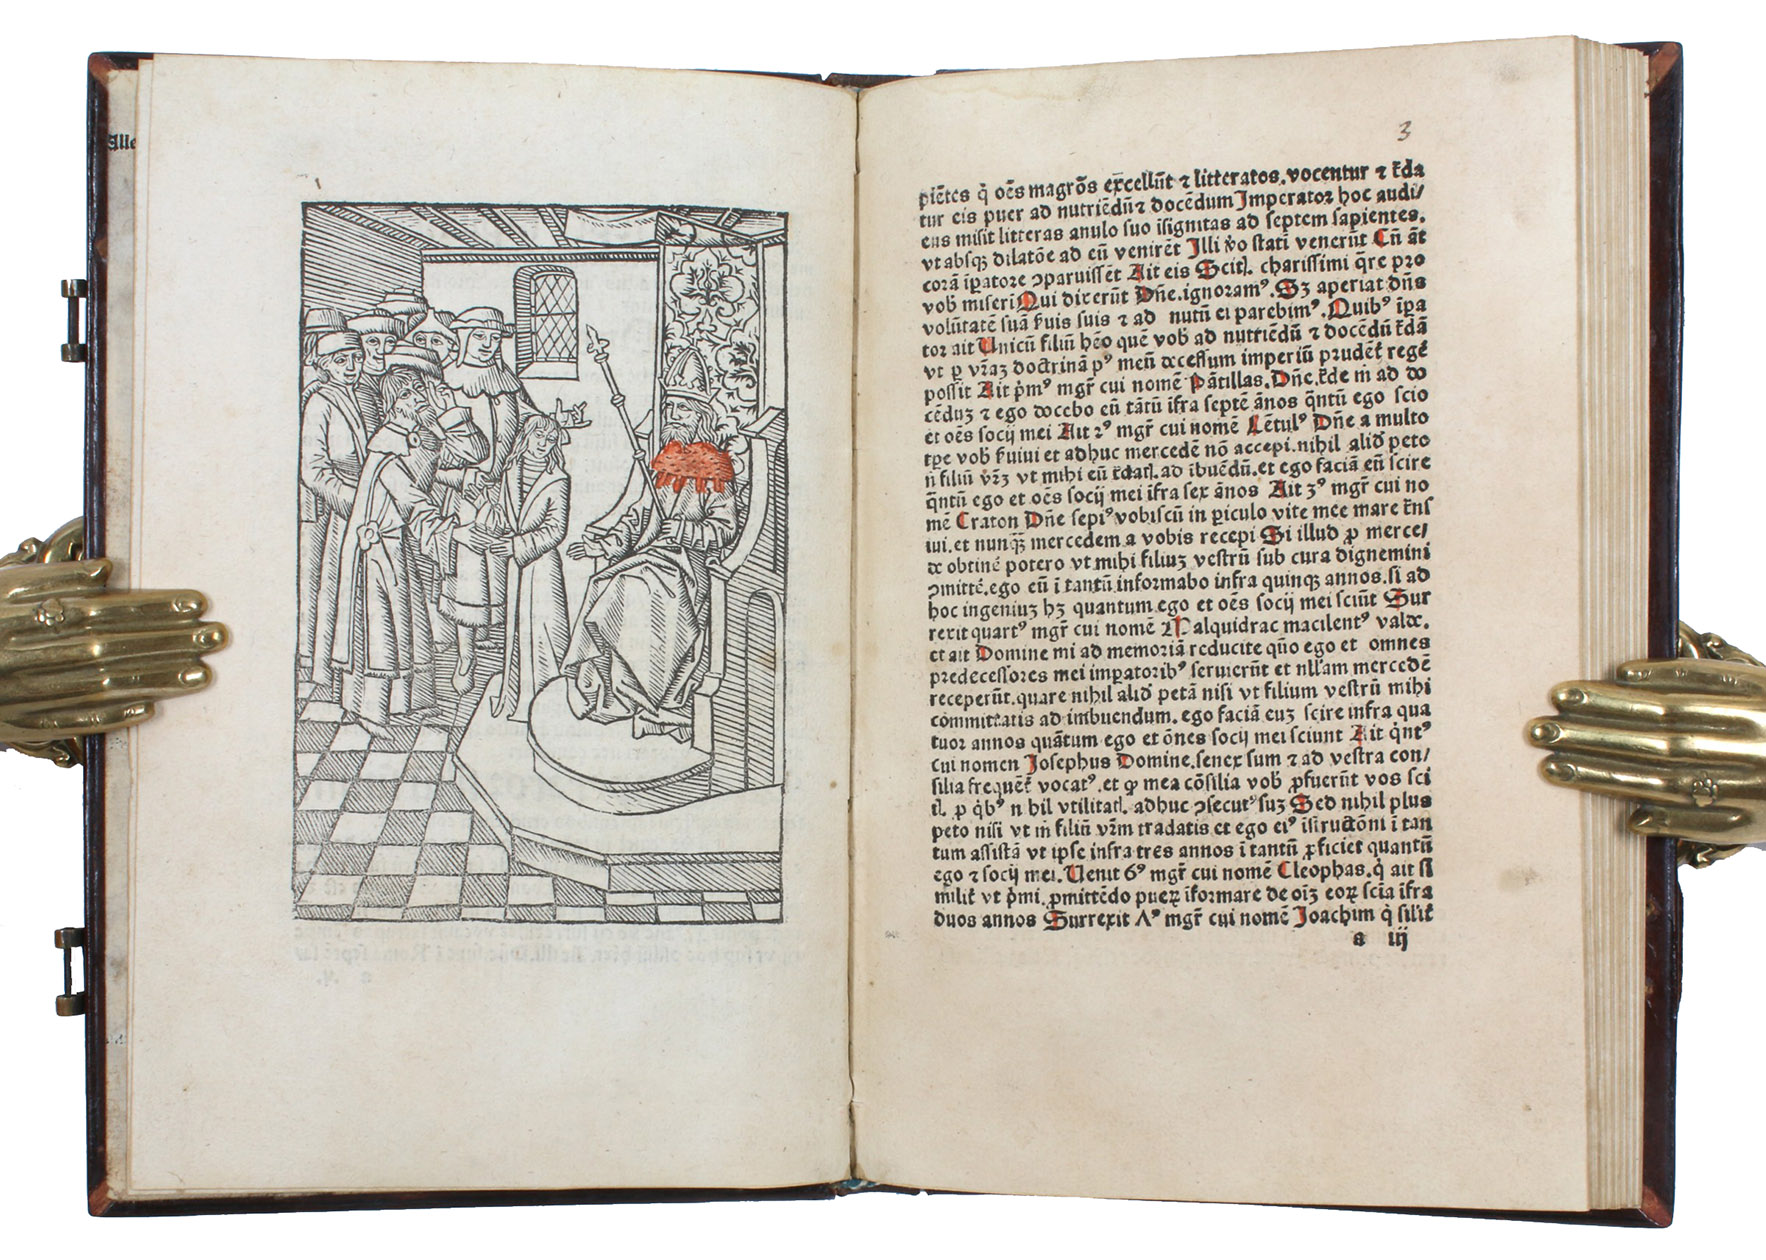 Alle
3
piẽtes q̇ oẽs magr̃os excellũt ⁊ litteratos.vocentur ⁊ t̃da
tur eis puer ad nutriẽdũ⁊ docẽdum Imperator hoc audi/
ens misit litteras anulo suo ĩsignitas ad septem sapientes.
vt absqꝫ dilatõe ad eũ venirẽt Illi ṽo stati venerũt Cũ ãt
corã ĩpatore ↄparuissẽt Ait eis Scitꝭ. charissimi q̃re pro
vob miseri Qui dixerũt Dñe.ignoramꝰ. Sꝫ aperiat dñs
volũtatẽ suã f̃uis suis ⁊ ad nutũ ei parebimꝰ. Quibꝰ ĩpa
tor ait Unicũ filiũ hẽo quẽ vob ad nutriẽdũ ⁊ docẽdũ t̃dã
vt ꝑ vr̃aꝫ doctrinã pꝰ meũ decessum imperiũ prudẽt̃ regẽ
possit Ait p̃mꝰ mgr̃ cui nomẽ Pãtillas. Dñe.t̃de m̃ ad do
cẽduꝫ ⁊ ego docebo eũ tãtũ ĩfra septẽ ãnos q̃ntũ ego scio
et oẽs socij mei Ait 2ꝰ mgr̃ cui nomẽ Lẽtulꝰ Dñe a multo
tp̃e vob f̃uiui et adhuc mercedẽ nõ accepi.nihil aliđ peto
ñ filiũ vr̃ꝫ vt mihi eũ t̃datꝭ.ad ĩbuẽdũ.et ego faciã eũ scire
q̃ntũ ego et oẽs socij mei ĩfra sex ãnos Ait 3ꝰ mgr̃ cui no
mẽ Craton Dñe sepiꝰ vobiscũ in ꝑiculo vite mee mare t̃ns
iui.et nunqꝫ̃ mercedem a vobis recepi Si illud ꝓ merce/
de obtinẽ potero vt mihi filiuꝫ vestrũ sub cura dignemini
ↄmittẽ.ego eũ ĩ tantũ informabo infra quinqꝫ annos.si ad
hoc ingeniuꝫ hꝫ quantum ego et oẽs socij mei sciũt Sur
rexit quartꝰ mgr̃ cui nomẽ Malquidrac macilentꝰ valde.
et ait Domine mi ad memoriã reducite qño ego et omnes
predecessores mei impatoribꝰ seruierũt et nllam mercedẽ
receperũt.quare nihil aliđ petã nisi vt filium vestrũ mihi
committatis ad imbuendum.ego faciã euꝫ scire infra qua
tuor annos quãtum ego et õnes socij mei sciunt Ait q̇ntꝰ
cui nomen Josephus Domine.senex sum ⁊ ad vestra con/
silia frequẽt̃ vocatꝰ.et ꝙ mea cõsilia vob ꝓfuerũt vos sci
tꝭ. ꝓ q̇bꝰ n hil vtilitatꝭ. adhuc ↄsecutꝰ suꝫ Sed nihil plus
peto nisi vt m̃ filiũ vr̃m tradatis et ego eiꝰ ĩstructõni ĩ tan
tum assistã vt ipse infra tres annos ĩ tantũ ꝓficiet quantũ
ego ⁊ socij mei. Venit 6ꝰ mgr̃ cui nomẽ Cleophas.q̇ ait si
milit̃ vt p̃mi.ꝓmittẽdo pueꝝ ĩformare de oĩꝫ eoꝝ scĩa ĩfra
duos annos Surrexit Λꝰ mgr̃ cui nomẽ Joachim q̇ silit̃
a iij